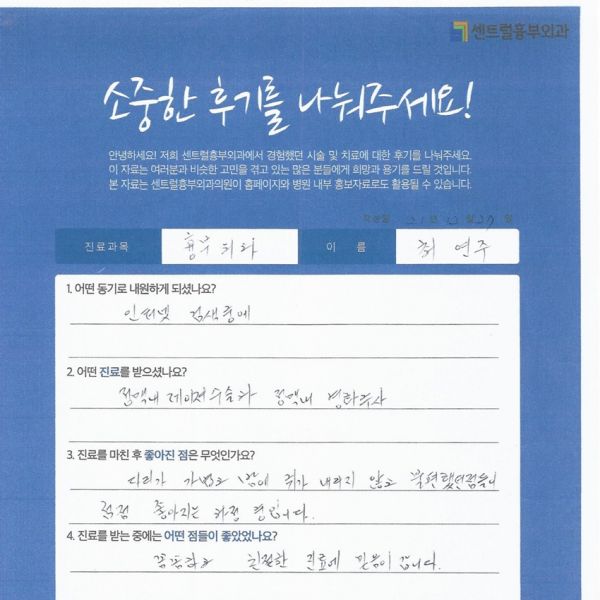 센트럴흉부외과
소중한 후기를 나눠주세요!
안녕하세요! 저희 센트럴흉부외과에서 경험했던 시술 및 치료에 대한 후기를 나눠주세요.
이 자료는 여러분과 비슷한 고민을 겪고 있는 많은 분들에게 희망과 용기를 드릴 것입니다.
본 자료는 센트럴흉부외과의원이 홈페이지와 병원 내부 홍보자료로도 활용될 수 있습니다.
작성일 21 년 월 29 일
진료과목 흉부외과 이 름 최연주
1. 어떤 동기로 내원하게 되셨나요?
인터넷 검색중에
2. 어떤 진료를 받으셨나요?
정맥내 레이저수술과 정맥내 경화주사
3. 진료를 마친 후 좋아진 점은 무엇인가요?
다리가 가볍고 밤에 쥐가 내리지 않고 불편했던점들이
점점 좋아지는 과정 중입니다.
4. 진료를 받는 중에는 어떤 점들이 좋았었나요?
꼼꼼하고 친절한 진료에 믿음이 갑니다.